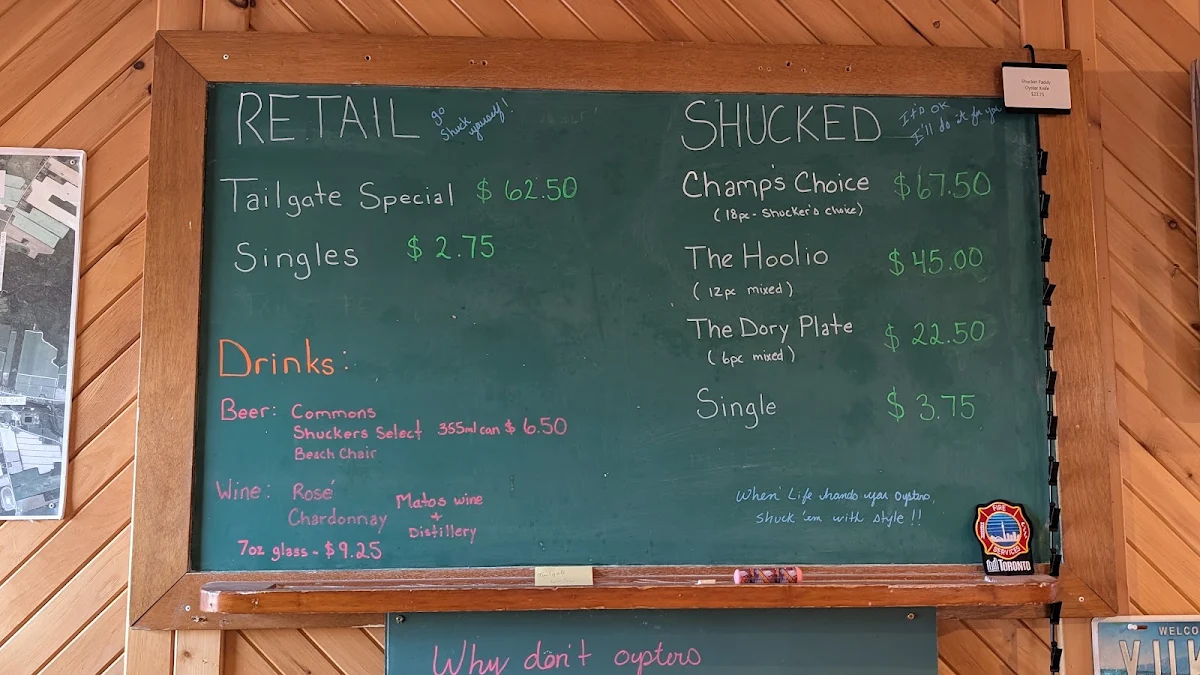 RETAIL go shuck yourself!
Tailgate Special $62.50
Singles $2.75
Drinks:
Beer: Commons
Shuckers Select 355ml can $6.50
Beach Chair
Wine: Rosé
Chardonnay
Matos wine
+
Distillery
7oz glass - $9.25
SHUCKED It's OK
I'll do it for you
Champ's Choice $67.50
(18pc - Shucker's choice)
The Hoolio $45.00
(12pc mixed)
The Dory Plate $22.50
(6pc mixed)
Single $3.75
When Life hands you oysters,
shuck 'em with style!!
Shucker Paddy
Oyster Knife
FIRE
SERVICES
TORONTO
Why don't oysters
WELCO